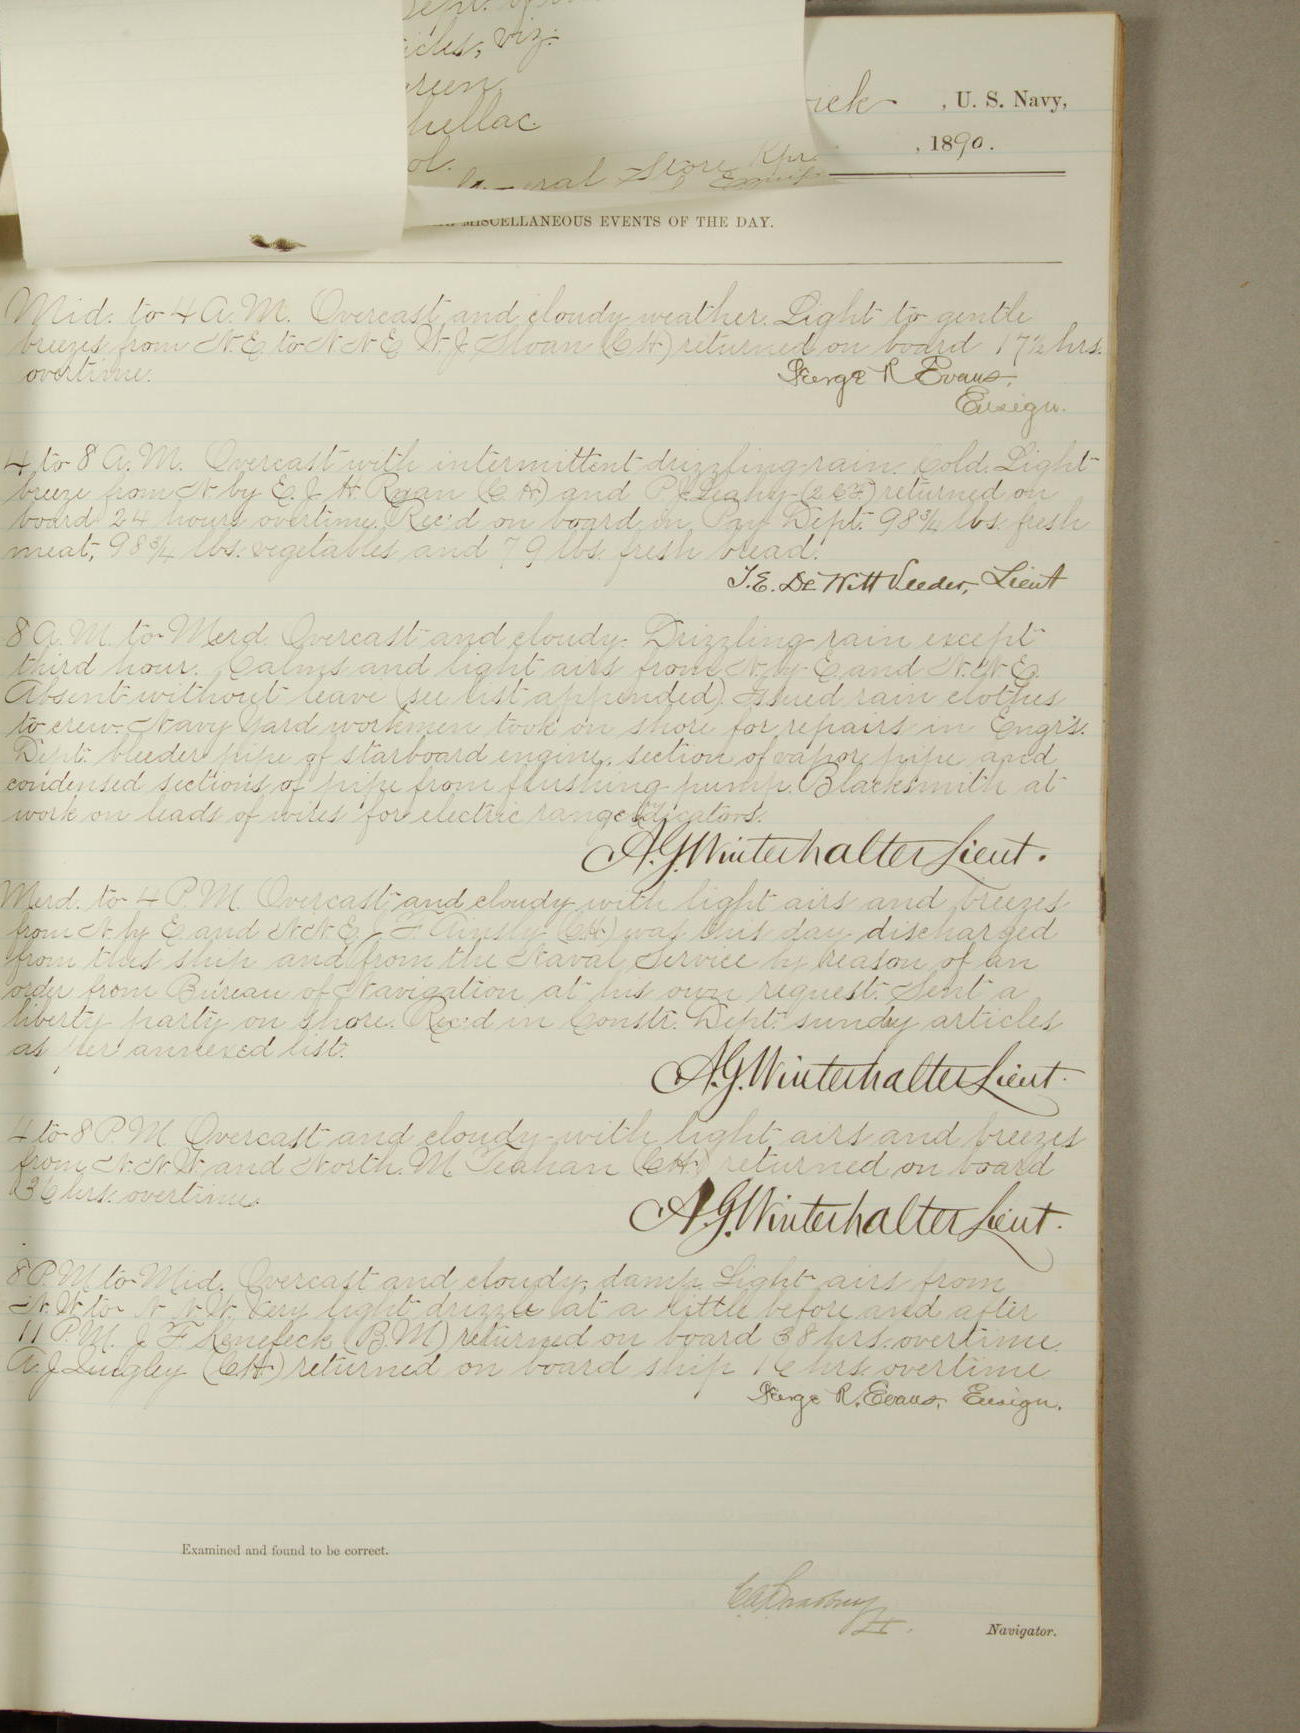 icles, viz:
hellac.
Store Kpr.
, U. S. Navy,
, 1890.
MISCELLANEOUS EVENTS OF THE DAY.
Mid. to 4 A.M. Overcast and cloudy weather. Light to gentle
breezes from N.E. to N N E. W. J. Sloan (C.H.) returned on board 17½ hrs.
overtime.
George R. Evans,
Ensign.
4 to 8 A.M. Overcast with intermittent drizzling rain. Cold. Light
breeze from N. by E. J. H. Ryan (C.H.) and P. J. Leahy (2 C.F.) returned on
board 24 hours overtime. Rec'd on board in Pay Dept. 98¾ lbs. fresh
meat, 98¾ lbs. vegetables and 79 lbs. fresh bread.
T. E. De Witt Veeder, Lieut
8 A.M. to Merd. Overcast and cloudy. Drizzling rain except
third hour. Calms and light airs from N. by E. and N. N. E.
Absent without leave (see list appended). Issued rain clothes
to crew. Navy Yard workmen took on shore for repairs in Engr's.
Dept. bleeder pipe of starboard engine, section of vapor pipe and
condensed sections of pipe from flushing pump. Blacksmith at
work on leads of wires for electric range indicators.
A. G. Winterhalter Lieut.
Merd. to 4 P.M. Overcast and cloudy with light airs and breezes
from N. by E. and N.N.E. J. F. Ainsly (C.H.) was this day discharged
from this ship and from the Naval Service by reason of an
order from Bureau of Navigation at his own request. Sent a
liberty party on shore. Rec'd in Constr. Dept. sundry articles
as per annexed list.
A. G. Winterhalter Lieut.
4 to 8 P.M. Overcast and cloudy with light airs and breezes
from N.N.W. and North. M. Teahan (C.H.) returned on board
36 hrs. overtime.
A. G. Winterhalter Lieut.
8 P.M. to Mid. Overcast and cloudy, damp. Light airs from
N.W. to N. N. W. Very light drizzle at a little before and after
11 P.M. J. F. Kenefeck (B.M.) returned on board 38 hrs. overtime.
A. J. Quigley (C.H.) returned on board ship 16 hrs. overtime
George R. Evans, Ensign.
Examined and found to be correct.
Lt.
Navigator.